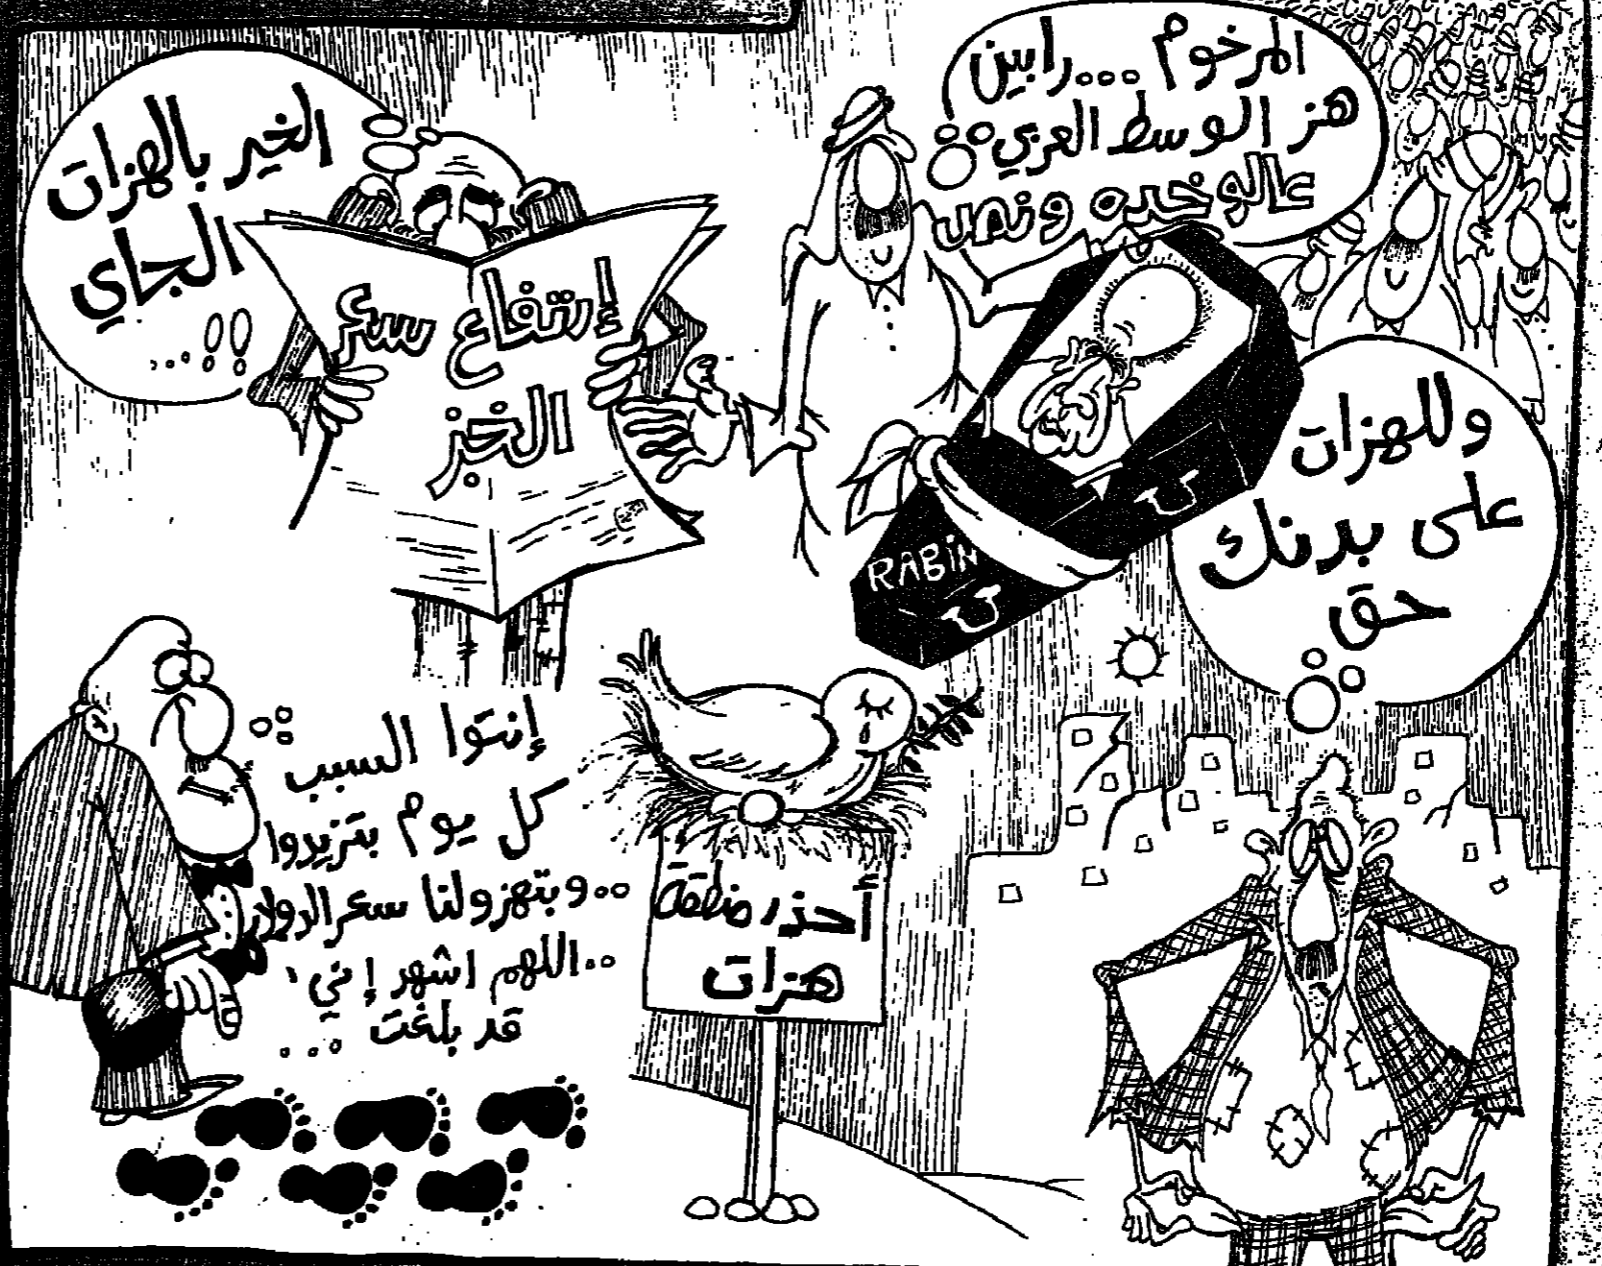 المرخوم ... رابين
هز الوسط العربي
عالوخده ونص
الخير بالهزات
الجاي
..!!
إرتفاع سعر
الخبز
RABIN
وللهزات
على بدنك
حق
إنتوا السبب
كل يوم بتزيدوا
..وبتهزولنا سعر الدولار
..اللهم اشهر إني
قد بلغت ...
أحذر منطقة
هزات